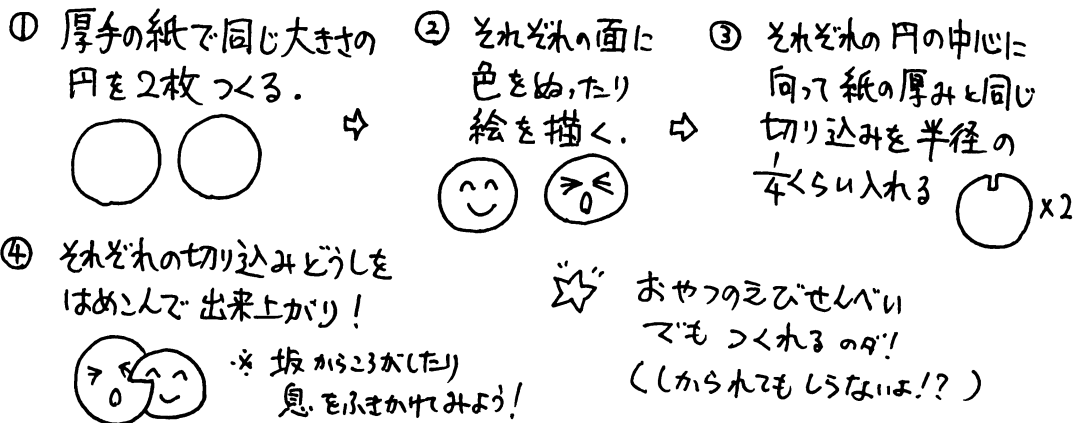 ① 厚手の紙で同じ大きさの
円を2枚つくる.
② それぞれの面に
色をぬったり
絵を描く.
③ それぞれの円の中心に
向って紙の厚みと同じ
切り込みを半径の
1/4くらい入れる
×2
④ それぞれの切り込みどうしを
はめこんで出来上がり!
※ 坂からころがしたり
息をふきかけてみよう!
おやつのえびせんべい
でもつくれるのダ!
(しかられてもしらないよ!?)